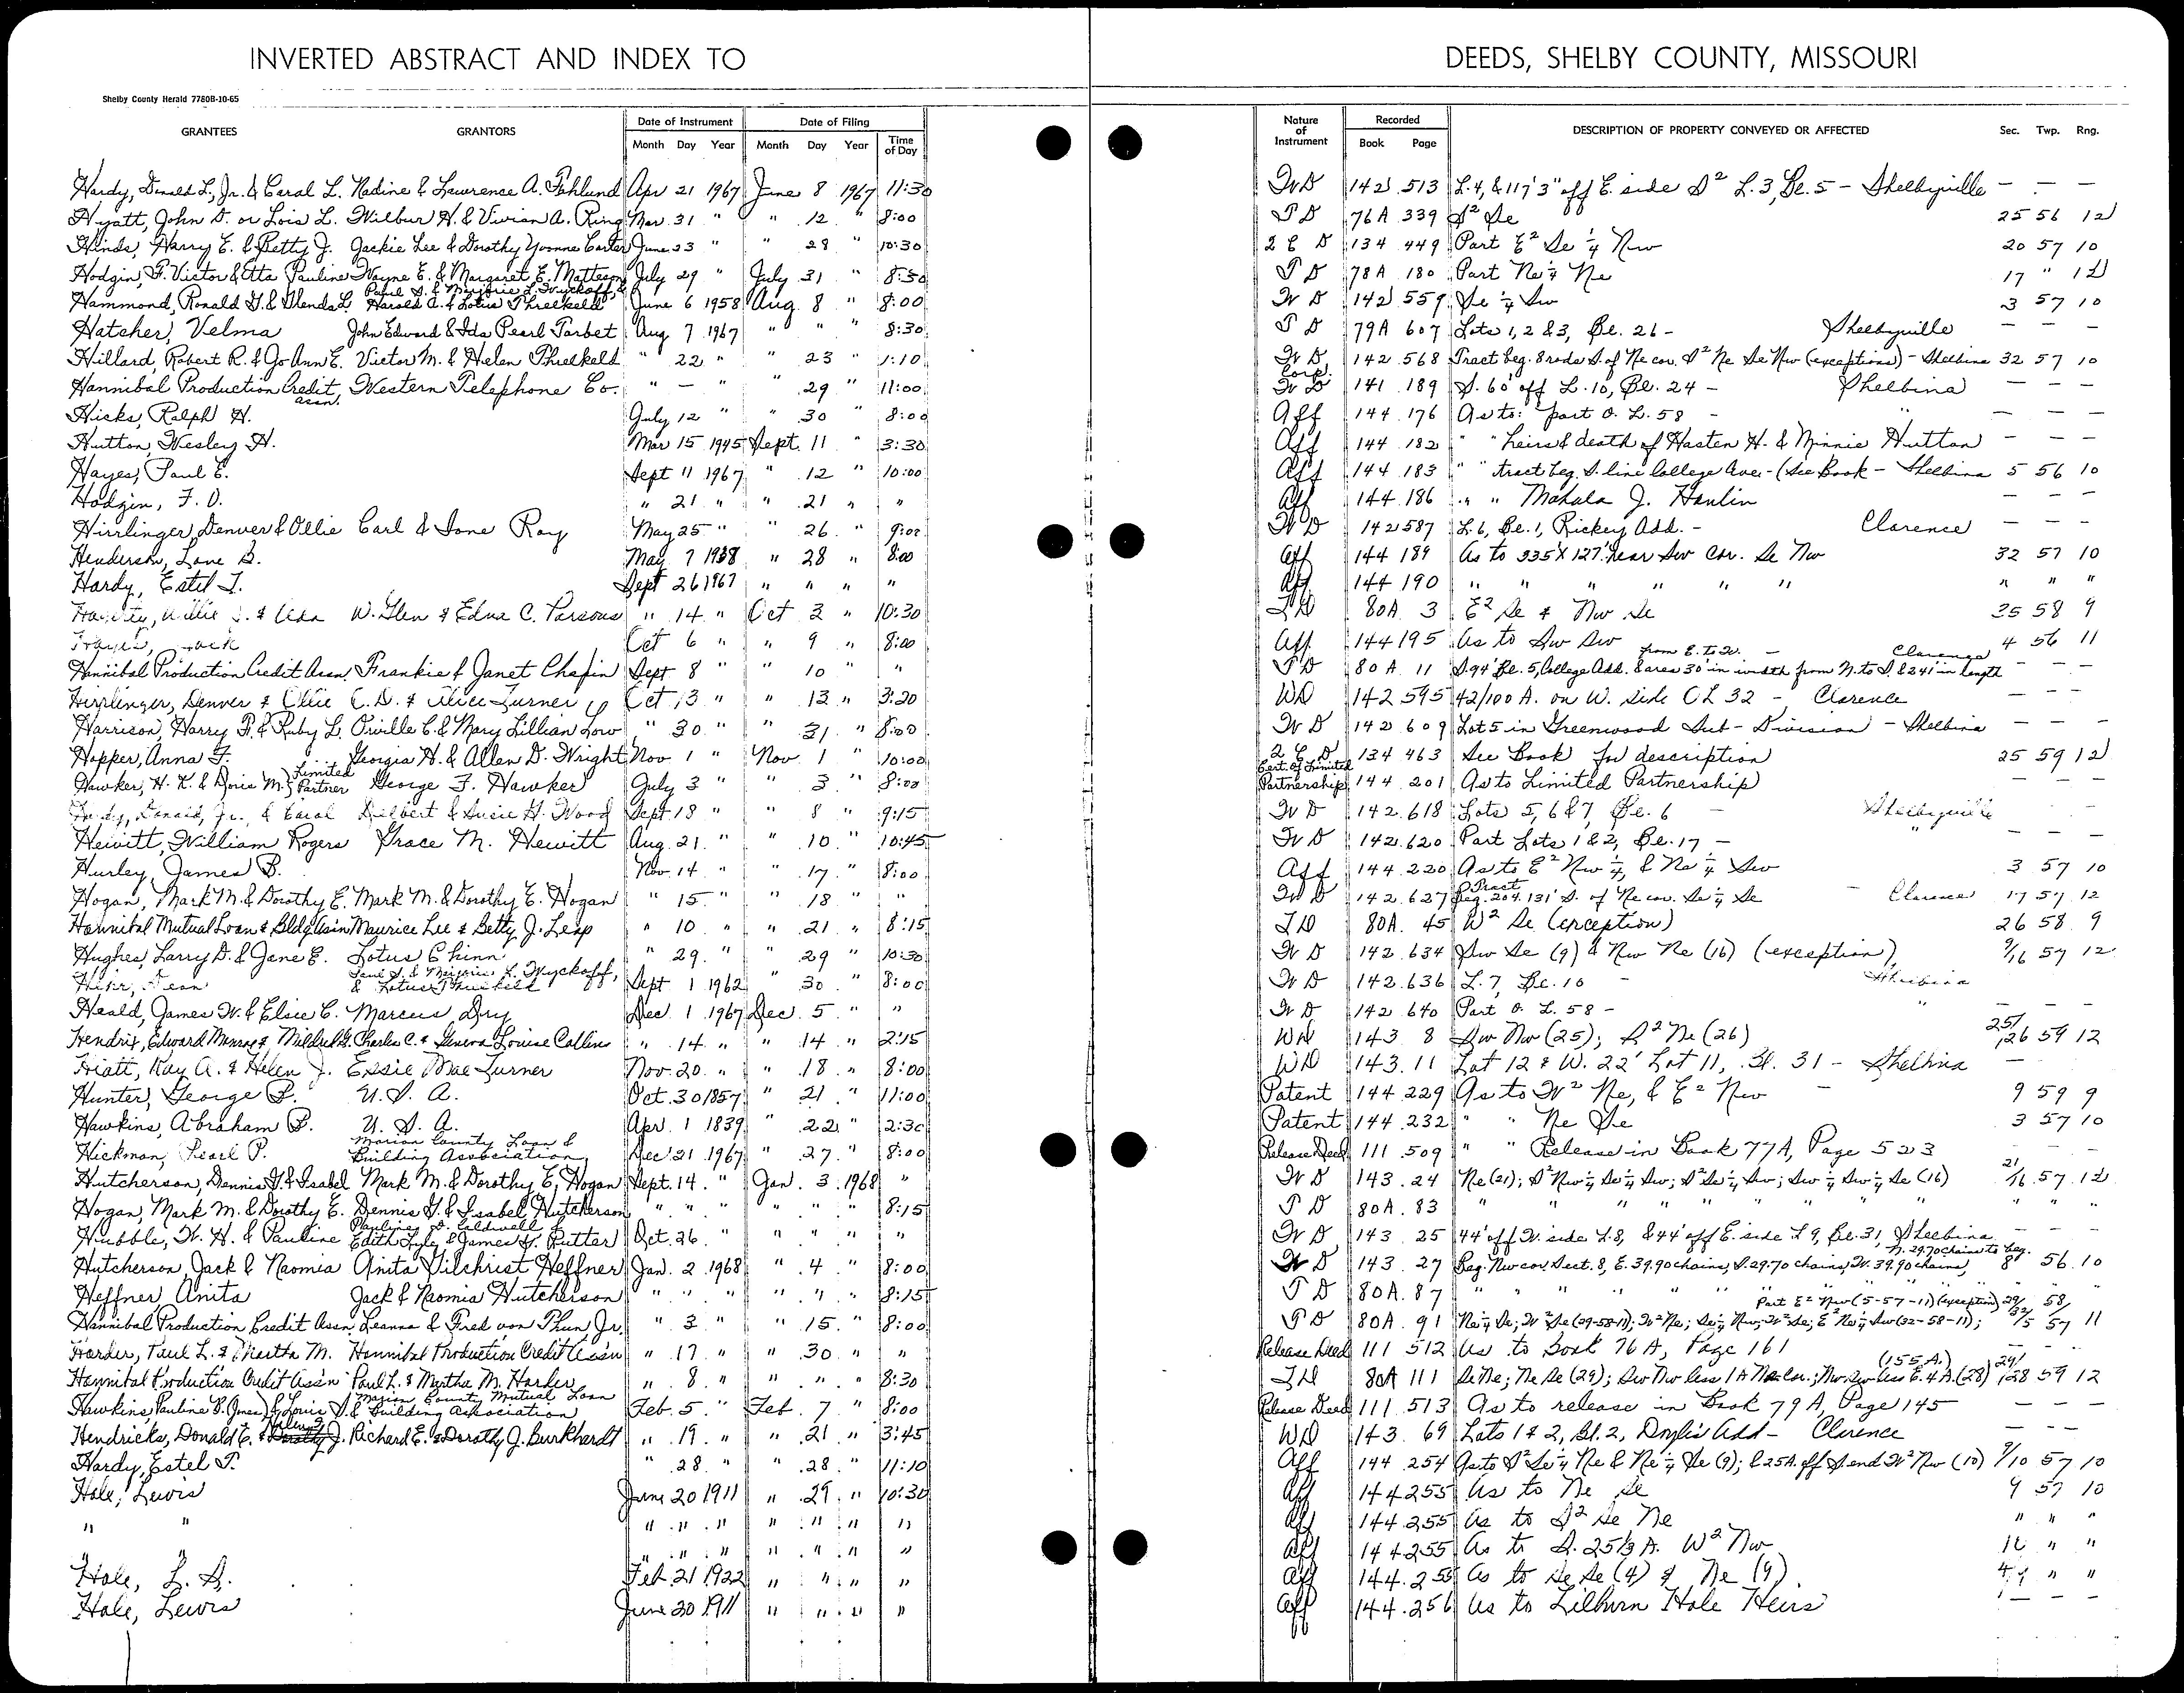 INVERTED ABSTRACT AND INDEX TO DEEDS, SHELBY COUNTY, MISSOURI
Shelby County Herald 7780B-10-65
Date of Instrument Date of Filing Nature of Instrument Recorded
GRANTEES GRANTORS Month Day Year Month Day Year Time of Day Book Page DESCRIPTION OF PROPERTY CONVEYED OR AFFECTED Sec. Twp. Rng.
Hardy, Donald L., Jr. & Carol L. Nadine & Lawrence A. Fohlund Apr 21 1967 June 8 1967 11:30 W D 142 513 L. 4, & 117' 3" off E. side S² L. 3, Bl. 5 - Shelbyville — — —
Hyatt, John D. or Lois L. Wilbur H. & Vivian A. Ring Mar. 31 " " 12 " 8:00 T D 76A 339 S² Se 25 56 12
Hinds, Harry E. & Betty J. Jackie Lee & Dorothy Yvonne Carter June 23 " " 28 " 10:30 2 E D 134 449 Part E² Se ¼ Nw 20 57 10
Hodgin, F. Victor & Etta Pauline Wayne E. & Margaret E. Matteson July 29 " July 31 " 8:30 T D 78A 180 Part Ne ¼ Ne 17 " 12
Paul S. & Marjorie L. Wyckoff, &
Hammond, Ronald G. & Glenda L. Harold A. & Lotus Threlkeld June 6 1958 Aug. 8 " 8:00 W D 142 559 Se ¼ Sw 3 57 10
Hatcher, Velma John Edward & Ida Pearl Tarbet Aug 7 1967 " " " 8:30 T D 79A 607 Lots 1, 2 & 3, Bl. 26 - Shelbyville — — —
Hillard, Robert R. & Jo Ann E. Victor M. & Helen Threlkeld " 22 " " 23 " 1:10 W D 142 568 Tract beg. 8 rods S of Ne cor. S² Ne Se Nw (exceptions) - Shelbina 32 57 10
Hannibal Production Credit Assn. Western Telephone Co. " — " " 29 " 11:00 Corp. W D 141 189 S. 60' off L. 10, Bl. 24 - Shelbina — — —
Hicks, Ralph H. July 12 " " 30 " 8:00 Aff 144 176 As to: part O. L. 58 - " — — —
Hutton, Wesley H. Mar 15 1945 Sept. 11 " 3:30 Aff 144 182 " " heirs & death of Hasten H. & Minnie Hutton — — —
Hayes, Paul E. Sept 11 1967 " 12 " 10:00 Aff 144 183 " " tract beg. S. line College Ave - (See Book - Shelbina 5 56 10
Hodgin, F. V. " 21 " " 21 " " Aff 144 186 " " Mahala J. Hanlin — — —
Hirrlinger, Denver & Ollie Carl & Ione Ray May 25 " " 26 " 9:00 W D 142 587 L. 6, Bl. 1, Rickey Add. - Clarence — — —
Henderson, Lane B. May 7 1938 " 28 " 8:00 Aff 144 189 As to 335' X 127' near Sw cor. Se Nw 32 57 10
Hardy, Estel T. Sept 26 1967 " " " " Aff 144 190 " " " " " " " " "
W. Glen & Edna C. Parsons " 14 " Oct 3 " 10:30 T D 80A. 3 E² Se & Nw Se 35 58 9
Oct 6 " " 9 " 8:00 Aff 144 195 As to Sw Sw 4 56 11
from E. to W. - Clarence
Hannibal Production Credit Assn. Frankie & Janet Chapin Sept 8 " " 10 " T D 80 A. 11 S. 94' Bl. 5, College Add. & area 30' in width from N. to S. & 241' in length — — —
Hirrlinger, Denver & Ollie C. D. & Alice Turner Oct 13 " " 13 " 3:20 WD 142 595 42/100 A. on W. Side OL 32 - Clarence — — —
Harrison, Harry F. & Ruby L. Orville C. & Mary Lillian Low " 30 " " 31 " 8:00 W D 142 609 Lot 5 in Greenwood Sub-Division - Shelbina — — —
Hopper, Anna F. Georgia H. & Allen D. Wright Nov 1 " Nov. 1 " 10:00 2 E D 134 463 See Book for description 25 59 12
Hawker, H. K. & Doris M. } Limited Partner George F. Hawker July 3 " " 3 " 8:00 Cert. of Limited Partnership 144 201 As to Limited Partnership — — —
Hardy, Donald, Jr. & Carol Delbert & Susie H. Wood Sept. 18 " " 8 " 9:15 W D 142 618 Lots 5, 6 & 7, Bl. 6 - Shelbyville
Hewitt, William Rogers Grace M. Hewitt Aug. 21 " " 10 " 10:45 W D 142 620 Part Lots 1 & 2, Bl. 17 - " — — —
Hurley, James B. Nov. 14 " " 17 " 8:00 Aff 144 220 As to E² Nw ¼, & Ne ¼ Sw 3 57 10
Hogan, Mark M. & Dorothy E. Mark M. & Dorothy E. Hogan " 15 " " 18 " " W D 142 627 Tract Beg. 204.131' S. of Ne cor. Se ¼ Se - Clarence 17 57 12
Hannibal Mutual Loan & Bldg Ass'n Maurice Lee & Betty J. Leap " 10 " " 21 " 8:15 T D 80A. 45 W² Se (exception) 26 58 9
Hughes, Larry D. & Jane E. Lotus Chinn " 29 " " 29 " 10:30 W D 142 634 Sw Se (9) & Nw Ne (16) (exception) 9/16 57 12
Paul S. & Marjorie L. Wyckoff, & Lotus Threlkeld Sept 1 1962 " 30 " 8:00 W D 142 636 L. 7, Bl. 10 - Shelbina
Heald, James W. & Elsie C. Marcus Dry Dec. 1 1967 Dec. 5 " " W D 142 640 Part O. L. 58 - " — — —
Hendrix, Edward Monroe & Mildred G. Charles C. & Geneva Louise Collins " 14 " " 14 " 2:15 WD 143 8 Sw Nw (25); S² Ne (26) 25/26 59 12
Hiatt, Ray A. & Helen J. Essie Mae Turner Nov. 20 " " 18 " 8:00 WD 143 11 Lot 12 & W. 22' Lot 11, Bl. 31 - Shelbina —
Hunter, George P. U. S. A. Oct. 30 1857 " 21 " 11:00 Patent 144 229 As to W² Ne, & E² Nw - 9 59 9
Hawkins, Abraham P. U. S. A. Apr. 1 1839 " 22 " 2:30 Patent 144 232 " " Ne Se 3 57 10
Hickman, Pearl P. Marion County Loan & Building Association Dec 21 1967 " 27 " 8:00 Release Deed 111 509 " " Release in Book 77A, Page 523 — — —
Hutcherson, Dennis G. & Isabel Mark M. & Dorothy E. Hogan Sept. 14 " Jan. 3 1968 " W D 143 24 Ne (21); S² Nw ¼ Se ¼ Sw; S² Se ¼ Sw; Sw ¼ Sw ¼ Se (16) 21/16 57 12
Hogan, Mark M. & Dorothy E. Dennis G. & Isabel Hutcherson " " " " " " 8:15 T D 80A. 83 " " " " " " " " "
Hubble, W. H. & Pauline Pauline D. Caldwell & Edith Lyle & James H. Rutter Oct. 26 " " " " " W D 143 25 44' off W. side L. 8, & 44' off E. side L 9, Bl. 31, Shelbina — — —
Hutcherson, Jack & Naomia Anita Gilchrist Heffner Jan. 2 1968 " 4 " 8:00 W D 143 27 Beg. Nw cor. Sect. 8, E. 39.90 chains, S. 29.70 chains, W. 39.90 chains, N. 29.70 chains to beg. 8 56 10
Heffner, Anita Jack & Naomia Hutcherson " " " " " " 8:15 T D 80A. 87 " " " " " " " "
Part E² Nw (5-57-11) (exception) 29/ 58/
Hannibal Production Credit Assn. Leanna & Fred von Thun Jr. " 3 " " 15 " 8:00 T D 80A. 91 Ne ¼ Se; W² Se (29-58-11); W² Ne; Se ¼ Nw; W² Se; E² Ne ¼ Sw (32-58-11); 32/5 57 11
Harder, Paul L. & Martha M. Hannibal Production Credit Ass'n " 17 " " 30 " " Release Deed 111 512 As to Book 76A, Page 161 — —
Hannibal Production Credit Ass'n Paul L. & Martha M. Harder " 8 " " " " 8:30 T D 80A 111 Se Ne; Ne Se (29); Sw Nw less 1A Ne Cor.; Nw Sw less E. 4 A. (28) (155 A.) 29/28 59 12
Hawkins, Pauline B. (Jones) & Louis S. & Marion County Mutual Loan Building Association Feb. 5 " Feb. 7 " 8:00 Release Deed 111 513 As to release in Book 79A, Page 145 — — —
Hendricks, Donald E. & Dorothy J. Richard E. & Dorothy J. Burkhardt " 19 " " 21 " 3:45 WD 143 69 Lots 1 & 2, Bl. 2, Doyle's Add - Clarence — — —
Hardy, Estel T. " 28 " " 28 " 11:10 Aff 144 254 As to S² Se ¼ Ne & Ne ¼ Se (9); & 25A. off S. end W² Nw (10) 9/10 57 10
Hale, Lewis June 20 1911 " 29 " 10:30 Aff 144 255 As to Ne Se 9 57 10
" " " " " " " " " Aff 144 255 As to S² Se Ne " " "
" " " " " " " " Aff 144 255 As to S. 25 1/3 A. W² Nw 10 " "
Hale, L. S. Feb. 21 1922 " " " " Aff 144 255 As to Se Se (4) & Ne (9) 4,9 " "
Hale, Lewis June 20 1911 " " " " Aff 144 256 As to Lilburn Hale Heirs — — —